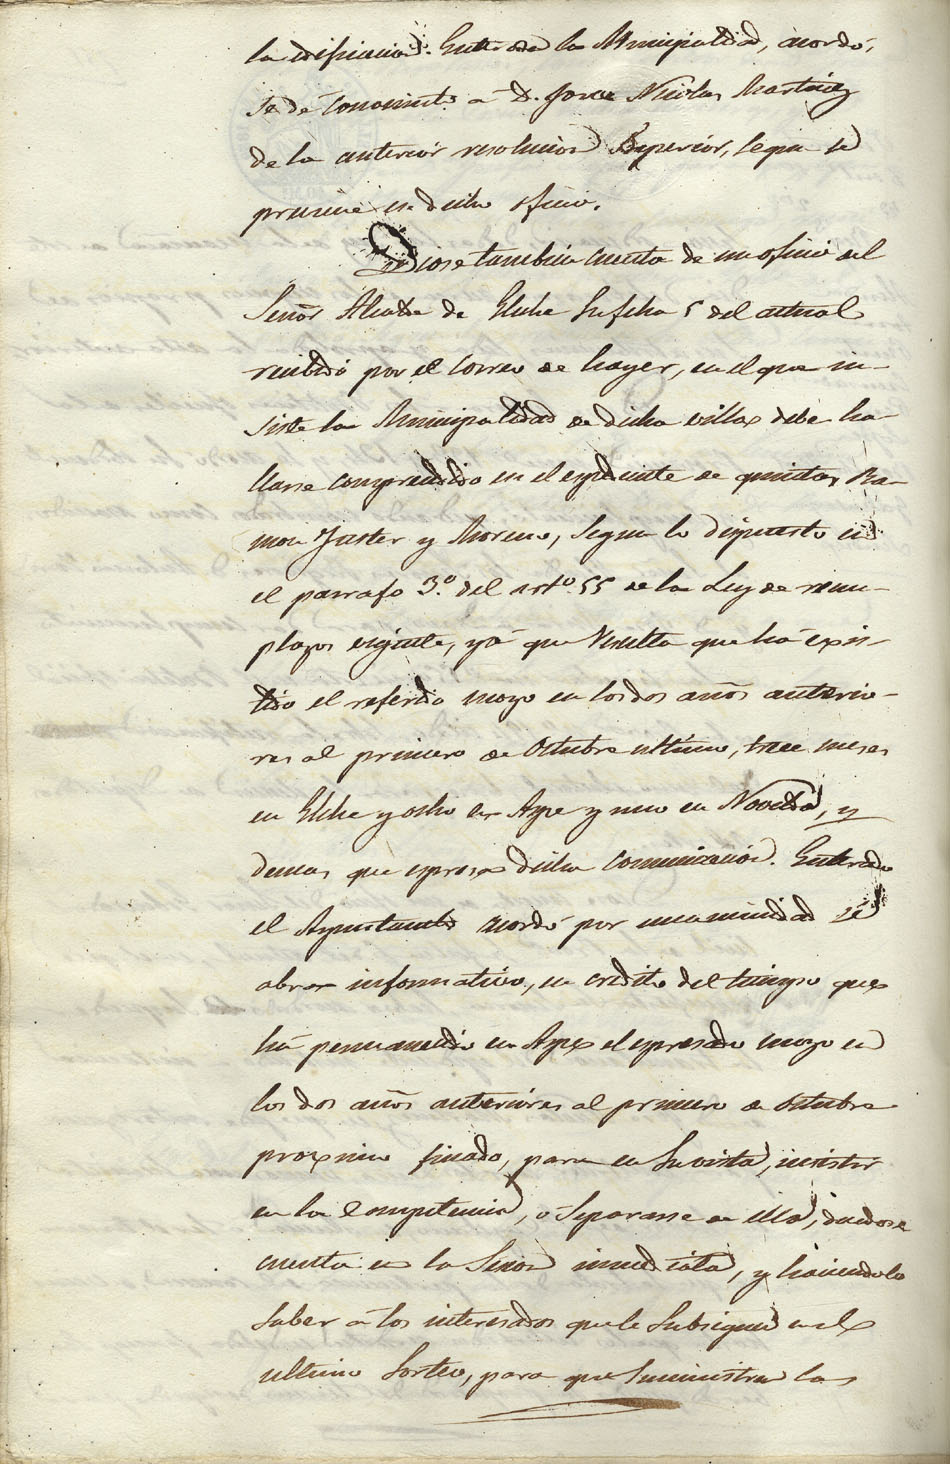 la edificacion. Enterada la Municipalidad, acordó,
se dé conocimto. a D. Jorge Nicolas Martinez
de la anterior resolucion Superior, segun se
previene en dicho oficio.
Diose tambien cuenta de un oficio del
Señor Alcalde de Elche su fcha 5 del actual
recibido por el correo de hayer, en el que in-
siste la Municipalidad de dicha villa debe ha-
llarse comprendido en el espediente de quintas Ra-
mon Juster y Moreno, segun lo dispuesto en
el parrafo 3º. del arto. 55 de la Ley de reem-
plazos vigente, yá que resulta que há exis-
tido el referido mozo en los dos años anterio-
res al primero de Octubre ultimo, trece meses
en Elche y ocho en Aspe y uno en Novelda, y
demas que espresa dicha comunicacion. Enterado
el Ayuntamto. acordó por unanimidad se
abra informativo, en credito del tiempo que
há permanecido en Aspe el espresado mozo en
los dos años anteriores al primero de Octubre
proximo finado, para en su vista, insistir
en la competencia, o separarse de ella, dandose
cuenta en la sesion inmediata, y haciendolo
saber á los interesados que le subsiguen en el
ultimo sorteo, para que suministren las